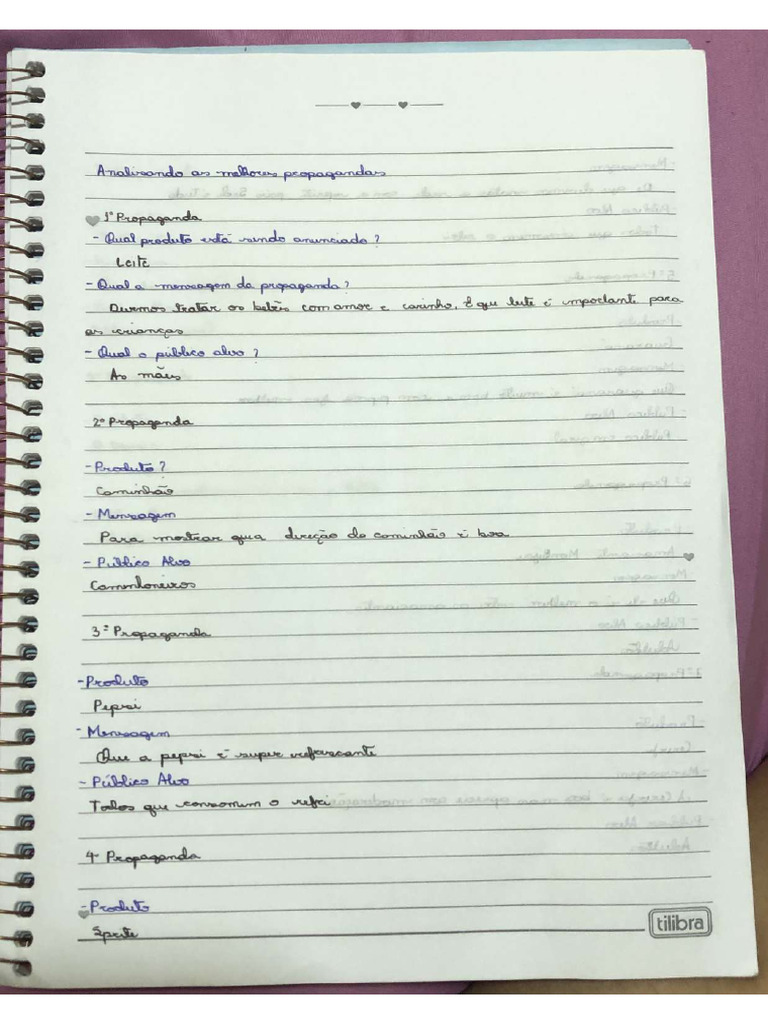 Analisando as melhores propagandas
1ª Propaganda
- Qual produto está sendo anunciado?
Leite
- Qual a mensagem da propaganda?
Devemos tratar os bebês com amor e carinho. E que leite é importante para
as crianças
- Qual o público alvo?
As mães
2ª Propaganda
- Produto?
Caminhão
- Mensagem
Para mostrar que a direção do caminhão é boa
- Público Alvo
Caminhoneiros
3ª Propaganda
- Produto
Pepsi
- Mensagem
Que a pepsi é super refrescante
- Público Alvo
Todos que consomem o refri
4ª Propaganda
- Produto
Sprite
tilibra